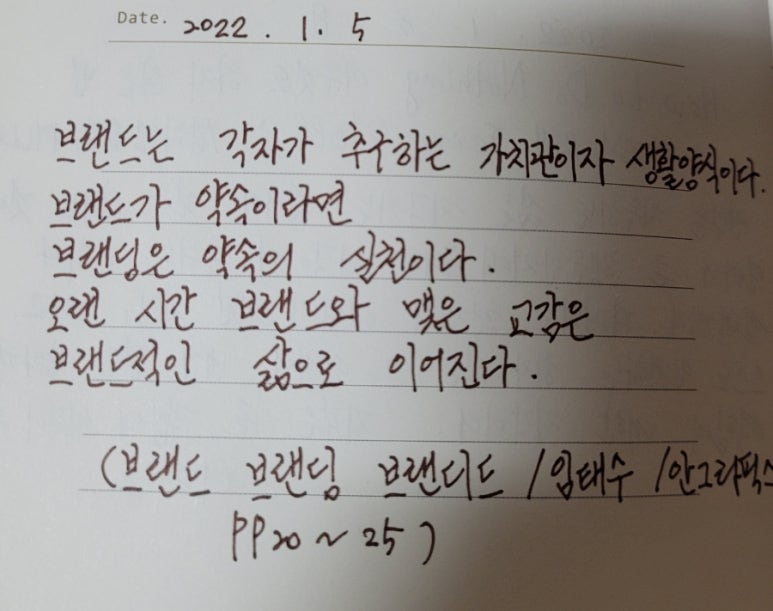 Date. 2022. 1. 5
브랜드는 각자가 추구하는 가치관이자 생활양식이다.
브랜드가 약속이라면
브랜딩은 약속의 실천이다.
오랜 시간 브랜드와 맺은 교감은
브랜드적인 삶으로 이어진다.
(브랜드 브랜딩 브랜디드 /임태수 /안그라픽스
PP20~25)